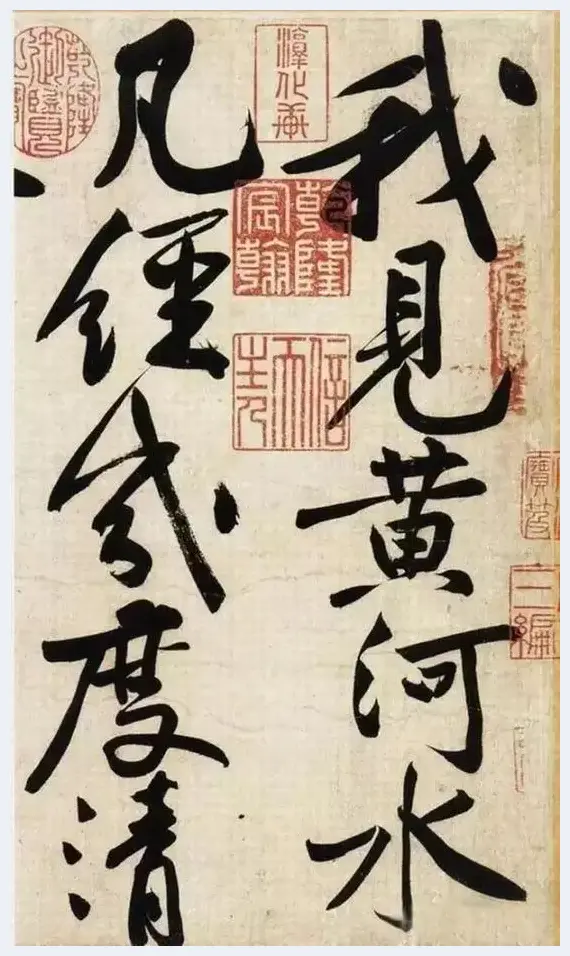 我見黄河水
凡經幾度清
淳化軒
乾隆宸翰
信天主人
乾隆御覽之寶
寶笈
三編